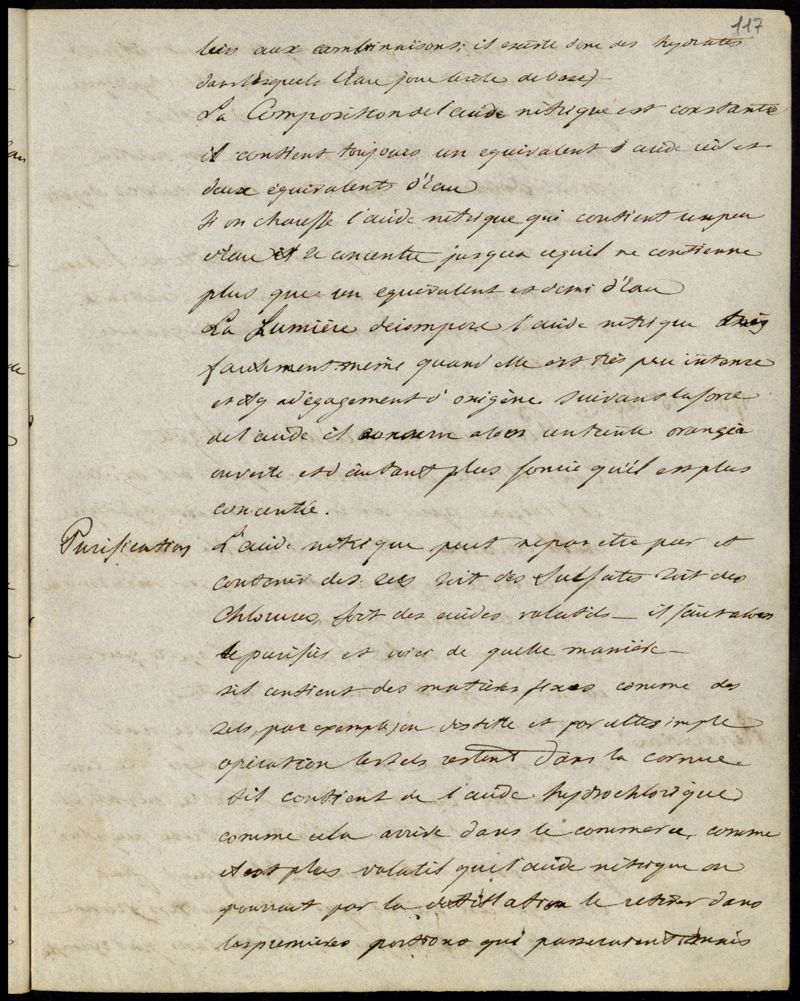 117
lieu aux combinaisons; il existe donc des hydrates
dans lesquels l'eau joue le role de base)-
La Composition de l'acide nitrique est constante
il contient toujours un equivalent d'acide réél et
deux équivalents d'eau
Si on chauffe l'acide nitrique qui contient un peu
d'eau il se concentre jusqua cequil ne contienne
plus que un equivalent et demi d'eau
La Lumière décompose l'acide nitrique très
facilement même quand elle est très peu intense
et il y a dégagement d'oxigène suivant la force
de l'acide il conserve alors une teinte orangée
ou verte et d'autant plus foncée qu'il est plus
concentré.
Purification L'acide nitrique peut nepas etre pur et
contenir des sels soit des Sulfates soit des
Chlorures, soit des acides volatils - il faut alors
le purifier et voici de quelle manière -
s'il contient des matières fixes comme des
sels, par exemple, on distille et par cette simple
opération les sels restent dans la cornue.
S'il contient de l'acide hydrochlorique
comme cela arrive dans le commerce, comme
il est plus volatil que l'acide nitrique on
pourrait par la distillation le retirer dans
les premières portions qui passeraient mais